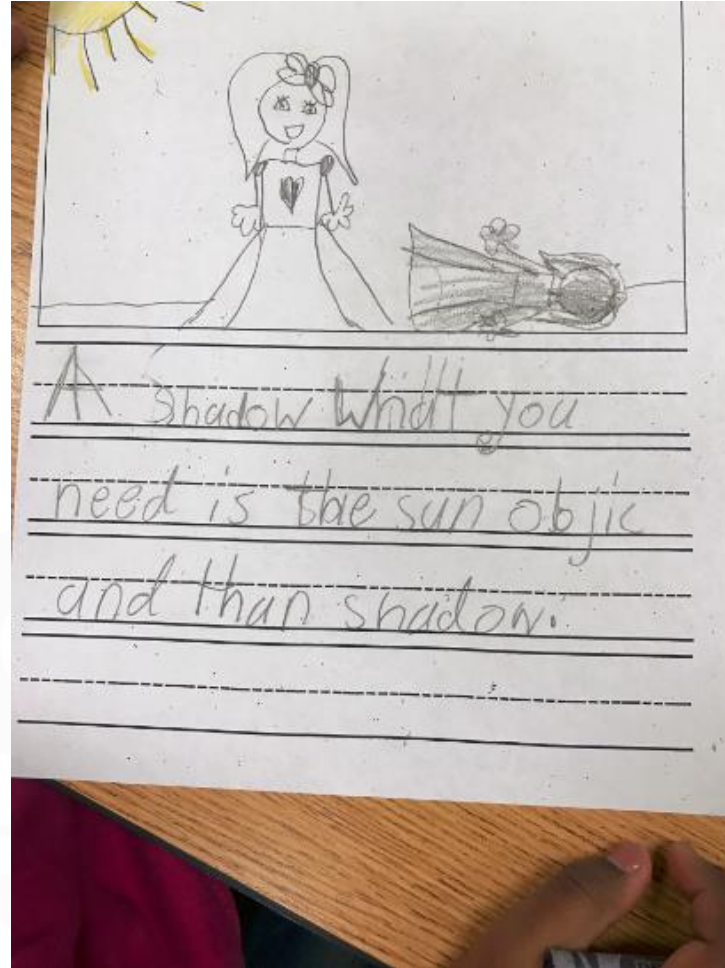 A shadow Whatt you
need is the sun objic
and than shadow.